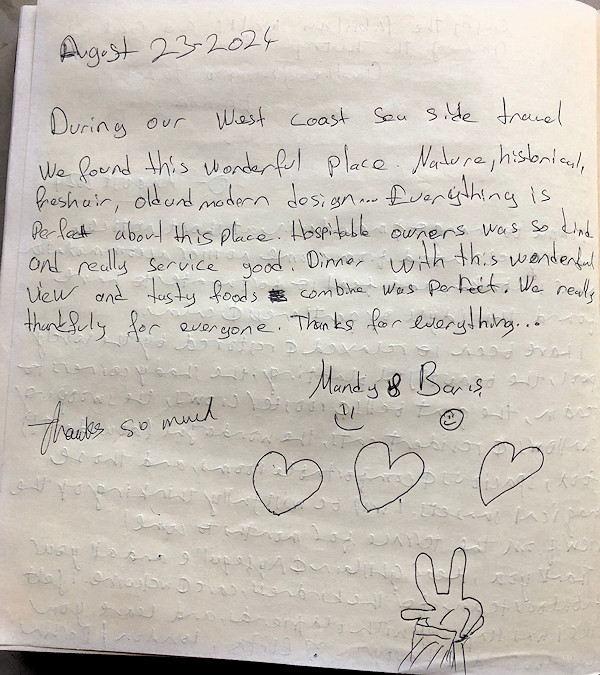 August 23-2024
During our West coast Sea side travel
We found this wonderful place. Nature, historical,
freshair, old and modern design... Everything is
Perfect about this place. Hospitable owners was so kind
and really service good. Dinner with this wonderful
view and tasty foods combine was perfect. We really
thankfuly for everyone. Thanks for everything...
Mandy & Baris
Thanks so much